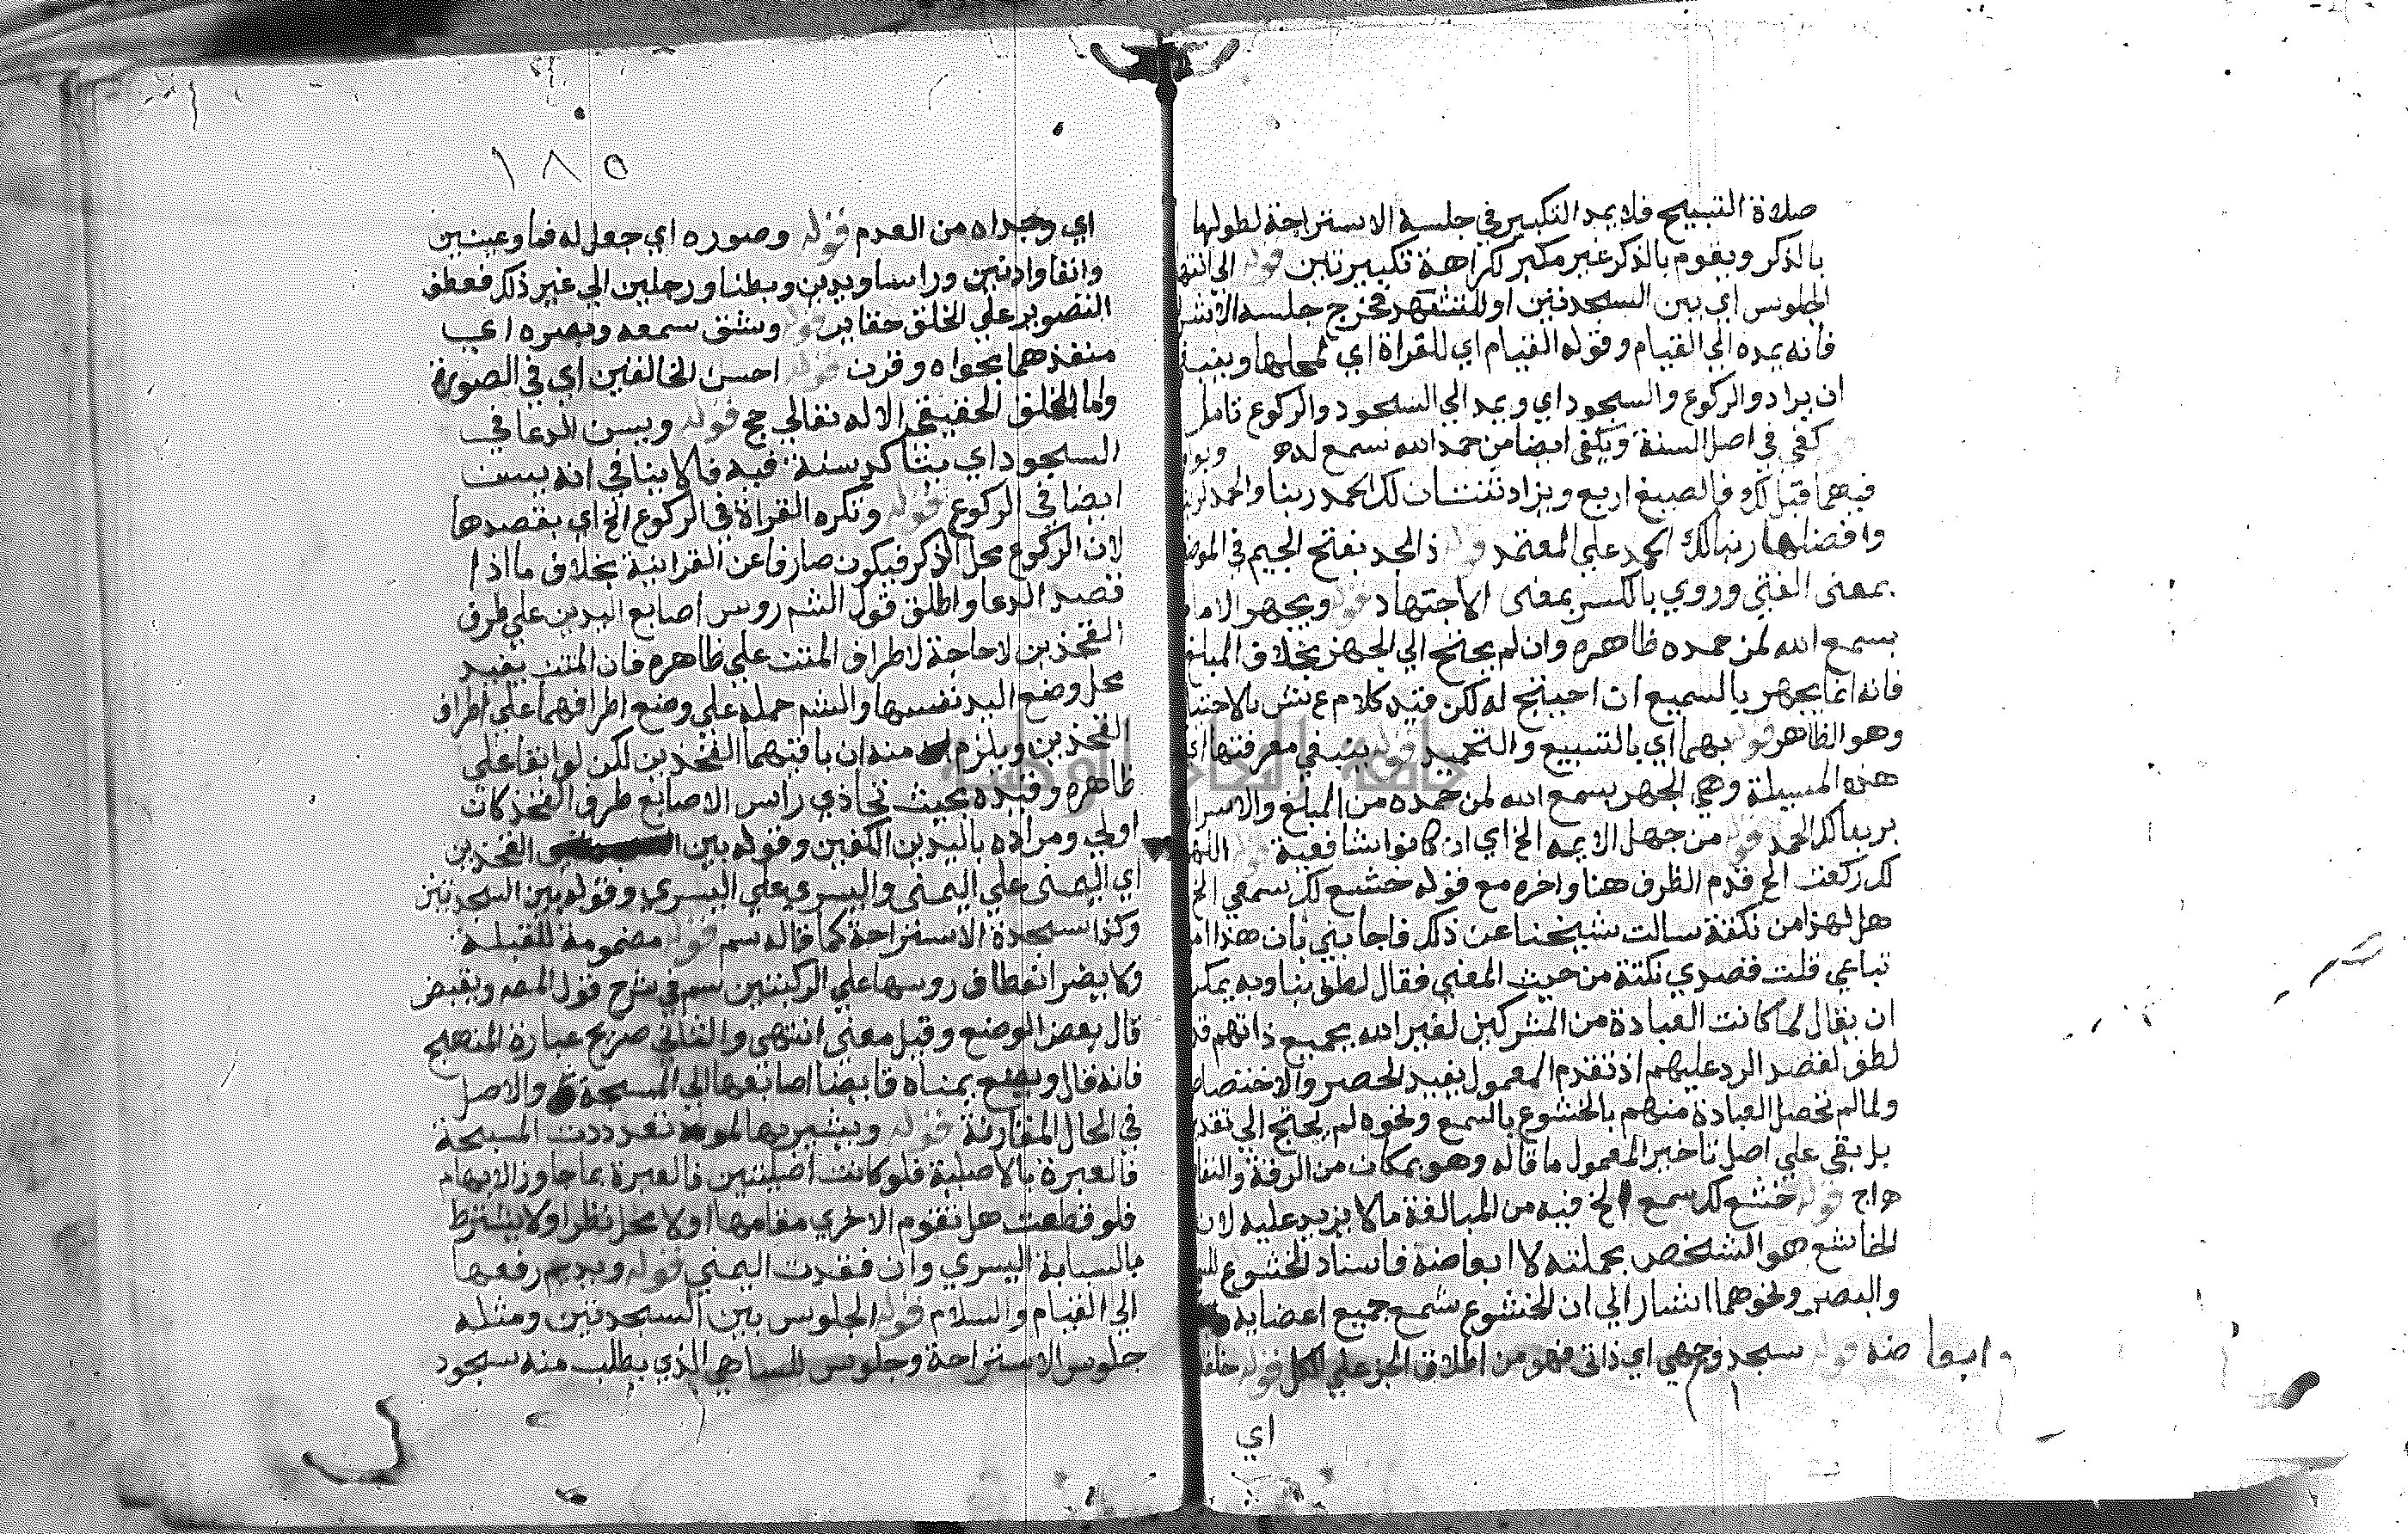 صلاة التسبيح فلا يمد التكبير في جلسة الاستراحة لطولها
بالذكر ويقوم بالذكر غير مكبر لكراهة تكبيرتين قوله الي انتها
الجلوس اي بين السجدتين او للتشهد فخرج جلسة الاستر
فانه يمده الي القيام وقوله القيام اي للقراة اي لمحلها وينبغي
ان يزاد والركوع والسجود اي ويمد الي السجود والركوع تامل
كفي في اصل السنة ويكفي ايضا من حمد الله سمع له
فيهما قبل لك فالصيغ اربع ويزاد ثنتان لك الحمد ربنا والحمد لربنا
وافضلها ربنا لك الحمد علي المعتمد قوله ذ الجد بفتح الجيم في الموضـ
بمعنى الغني وروي بالكسر بمعنى الاجتهاد قوله ويجهر الامام
بسمع الله لمن حمده ظاهره وان لم يحتج الي الجهر بخلاف المبلغ
فانه انما يجهر بالسميع ان احتيج له لكن قيد كلام ع ش بالاحتيا
وهو الظاهر قوله بهما اي بالتسبيح والتحميد قوله ينبغي معرفتها اي
هذه المسيلة وهي الجهر بسمع الله لمن حمده من المبلغ والاسرار
بربنا لك الحمد قوله من جهل الايمة الخ اي ان كانوا شافعية قوله اللهم
لك ركعت الخ قدم الظرف هنا واخره مع قوله خشع لك سمعي الخ
هل لهذا من نكتة سالت شيخنا عن ذلك فاجابني بان هذا امر
تباعي قلت قصدي نكتة من حيث المعني فقال لطف بنا وبه يمكن
ان يقال لما كانت العبادة من المشركين لغير الله بجميع ذاتهم قد
لطف لقصد الرد عليهم اذ تقدم المعمول يفيد الحصر والاختصاص
ولما لم تحصل العبادة منهم بالخشوع بالسمع ونحوه لم يحتج الي تقد
بل بقي علي اصل تاخير المعمول ما قاله وهو بمكان من الرقة والنفا
هـ اج قوله خشع لك سمعي الخ فيه من المبالغة ما لا يزيد عليه لان
الخاشع هو الشخص بجملته لا ابعاضه فاسناد الخشوع للسـ
والبصر ونحوهما اشار الي ان الخشوع شمع جميع اعضايه
وابعاضه قوله سجد وجهي اي ذاتي فهو من اطلاق الجز علي الكل قوله خلقه
اي
١٨٥
اي وجداه من العدم قوله وصوره اي جعل له فما وعينين
وانفا واذنين وراسا ويدين وبطنا ورجلين الي غير ذلك فعطف
التصوير علي الخلق مغاير قوله وشق سمعه وبصره اي
منفذهما بحواه وقرن قوله احسن الخالقين اي في الصورة
واما الخلق الحقيقي الا له تعالي حج قوله ويسن الدعا في
السجود اي يتاكد سنة فيه فالا ينافي انه يسن
ايضا في الركوع قوله وتكره القراة في الركوع الخ اي بقصدها
لان الركوع محل الذكر فيكون صارفا عن القرانية بخلاف ما اذا
قصد الدعا واطلق قول الشم روس اصابع اليدين علي طرف
الفخذين لا حاجة لاطراف المتن علي ظاهره فان المتن يفيد
محل وضع اليد نفسها والشم حمله علي وضع اطرافهما علي اطراف
الفخذين ويلزم منه ان باقيهما الفخذين لكن لو ابقا علي
ظاهره وقيده بحيث تحاذي راس الاصابع طرف الفخذ كان
اولي ومراده باليدين الكفين وقوله بين الفخذين
اي اليمنى علي اليمنى واليسري علي اليسري وقوله بين السجدتين
وكذا سجدة الاستراحة كما قاله سم قوله مضمومة للقبلة
ولا يضر انعطاف روسها علي الركبتين سم في شرح قول المصه ويقبض
قال بعض الوضع وقبل معني انتهى والثاني صريح عبارة المنهج
فانه قال ويضع يمناه قابضا اصابعها الي المسبحة والاصل
في الحال المقارنة قوله ويشير بها لو تعددت المسبحة
فالعبرة بالاصلية فلو كانت اصليتين فالعبرة بما جاوز الابهام
فلو قطعت هل تقوم الاخري مقامها اولا محل نظر ولا يشترط
بالسبابة اليسري وان فقدت اليمني قوله ويديم رفعها
الي القيام والسلام قوله الجلوس بين السجدتين ومثله
جلوس الاستراحة وجلوس للساهي الذي يطلب منه سجود